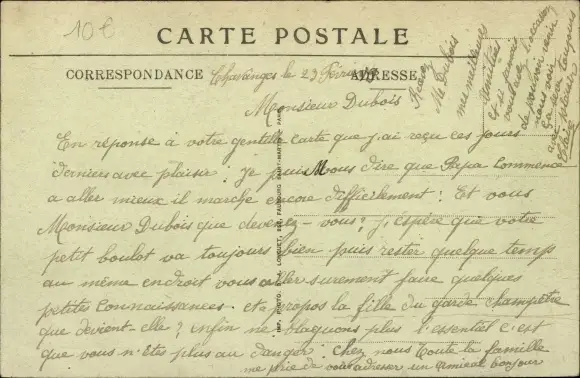 10€
CARTE POSTALE
CORRESPONDANCE
ADRESSE
Chavanges le 23 Février
Monsieur Dubois
En réponse à votre gentille carte que j'ai reçu ces jours
derniers avec plaisir. Je puis vous dire que Papa commence
a aller mieux il marche encore difficilement. Et vous
Monsieur Dubois que devenez-vous? j'espère que votre
petit boulot va toujours bien puis rester quelque temps
au même endroit vous allez surement faire quelques
petites connaissances. et a propos la fille du garde champêtre
que devient elle? enfin ne blaguons plus l'essentiel c'est
que vous n'êtes plus au danger. Chez nous toute la famille
me prie de vous adresser un amical bonjour
Recevez
Mr Dubois
mes meilleures
amitiés
et si jamais
vous avez l'occasion
de pouvoir venir
nous voir
ça sera toujours
avec plaisir
IMP. PHOTO A. LONGUET, 250, FAUBOURG SAINT-MARTIN, PARIS